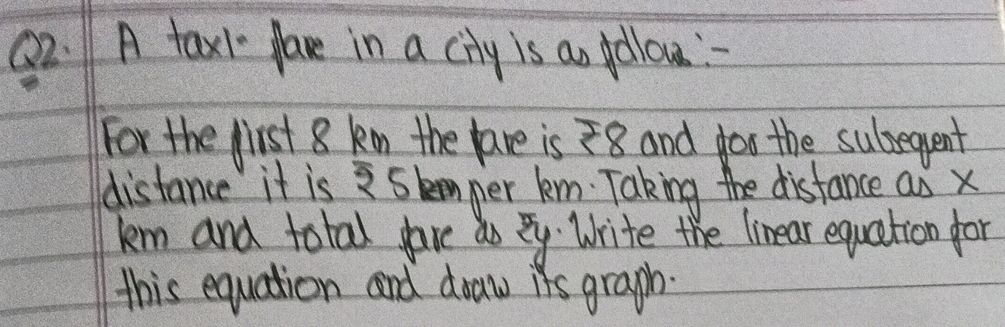 Q2. A taxi fare in a city is as follow:-
For the first 8 km the fare is ₹8 and for the subsequent
distance it is ₹5 per km. Taking the distance as x
km and total fare as ₹y. Write the linear equation for
this equation and draw its graph.